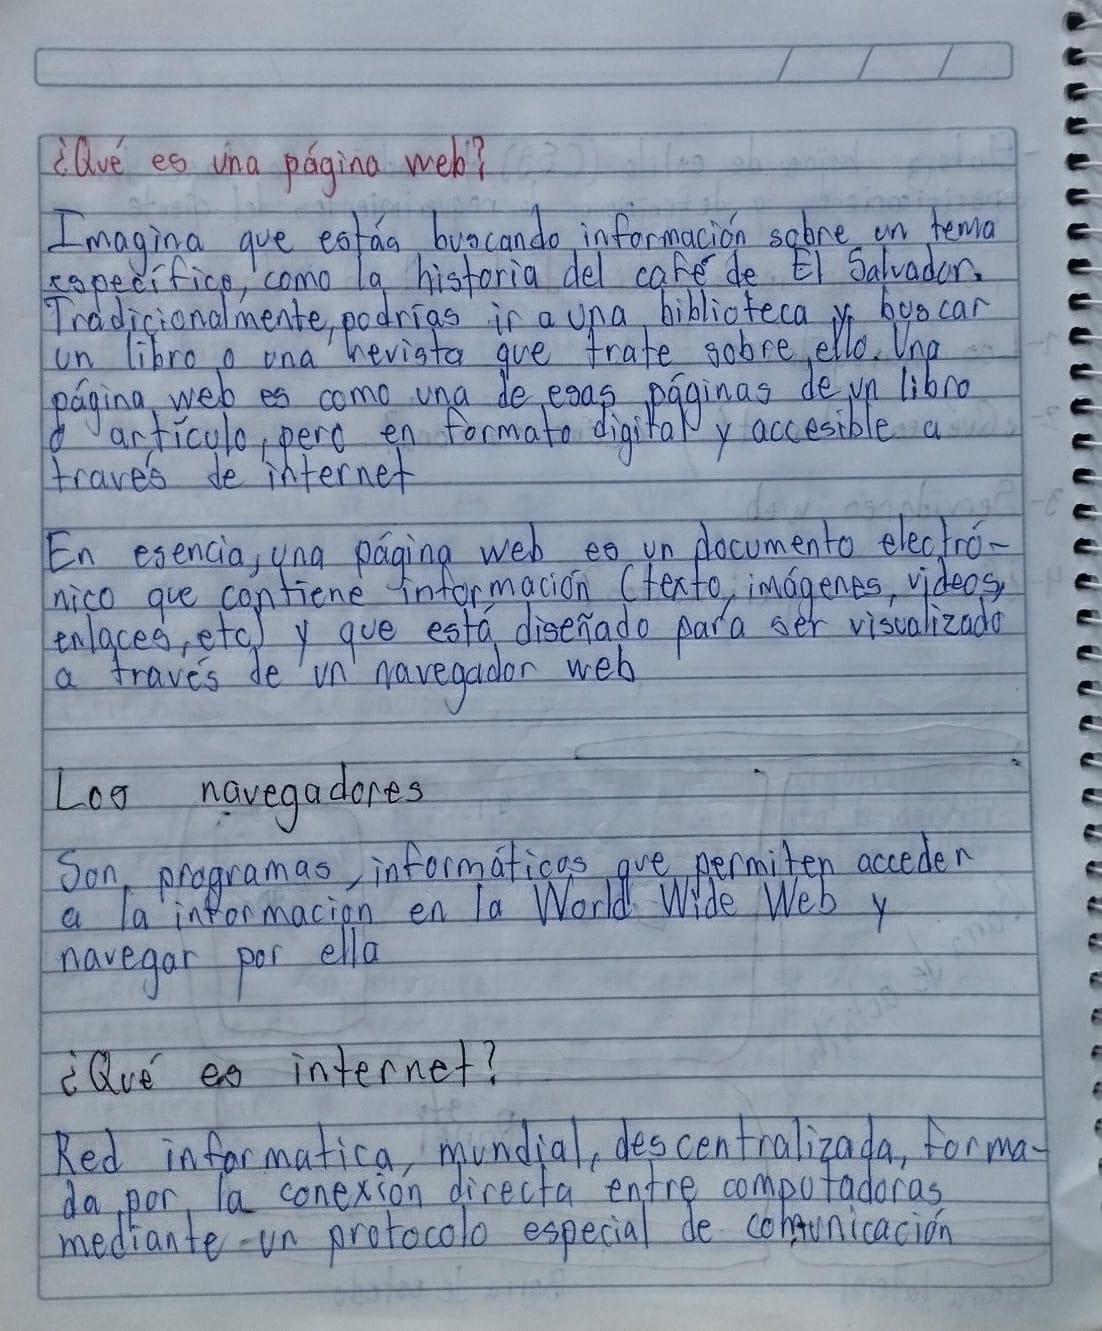 ¿Qué es una página web?
Imagina que estás buscando información sobre un tema
específico, como la historia del café de El Salvador.
Tradicionalmente, podrías ir a una biblioteca y buscar
un libro o una revista que trate sobre ello. Una
página web es como una de esas páginas de un libro
o artículo, pero en formato digital y accesible a
través de internet
En esencia, una página web es un documento electró-
nico que contiene información (texto, imágenes, videos,
enlaces, etc) y que está diseñado para ser visualizado
a través de un navegador web
Los navegadores
Son programas informáticos que permiten acceder
a la información en la World Wide Web y
navegar por ella
¿Qué es internet?
Red informatica, mundial, descentralizada, forma-
da por la conexión directa entre computadoras
mediante un protocolo especial de comunicación